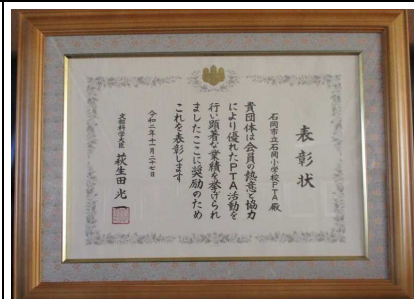 表彰状
石岡市立石岡小学校PTA殿
貴団体は会員の熱意と協力
により優れたPTA活動を
行い顕著な業績を挙げられ
ましたここに奨励のため
これを表彰します
令和二年十一月二十七日
文部科学大臣 萩生田光一